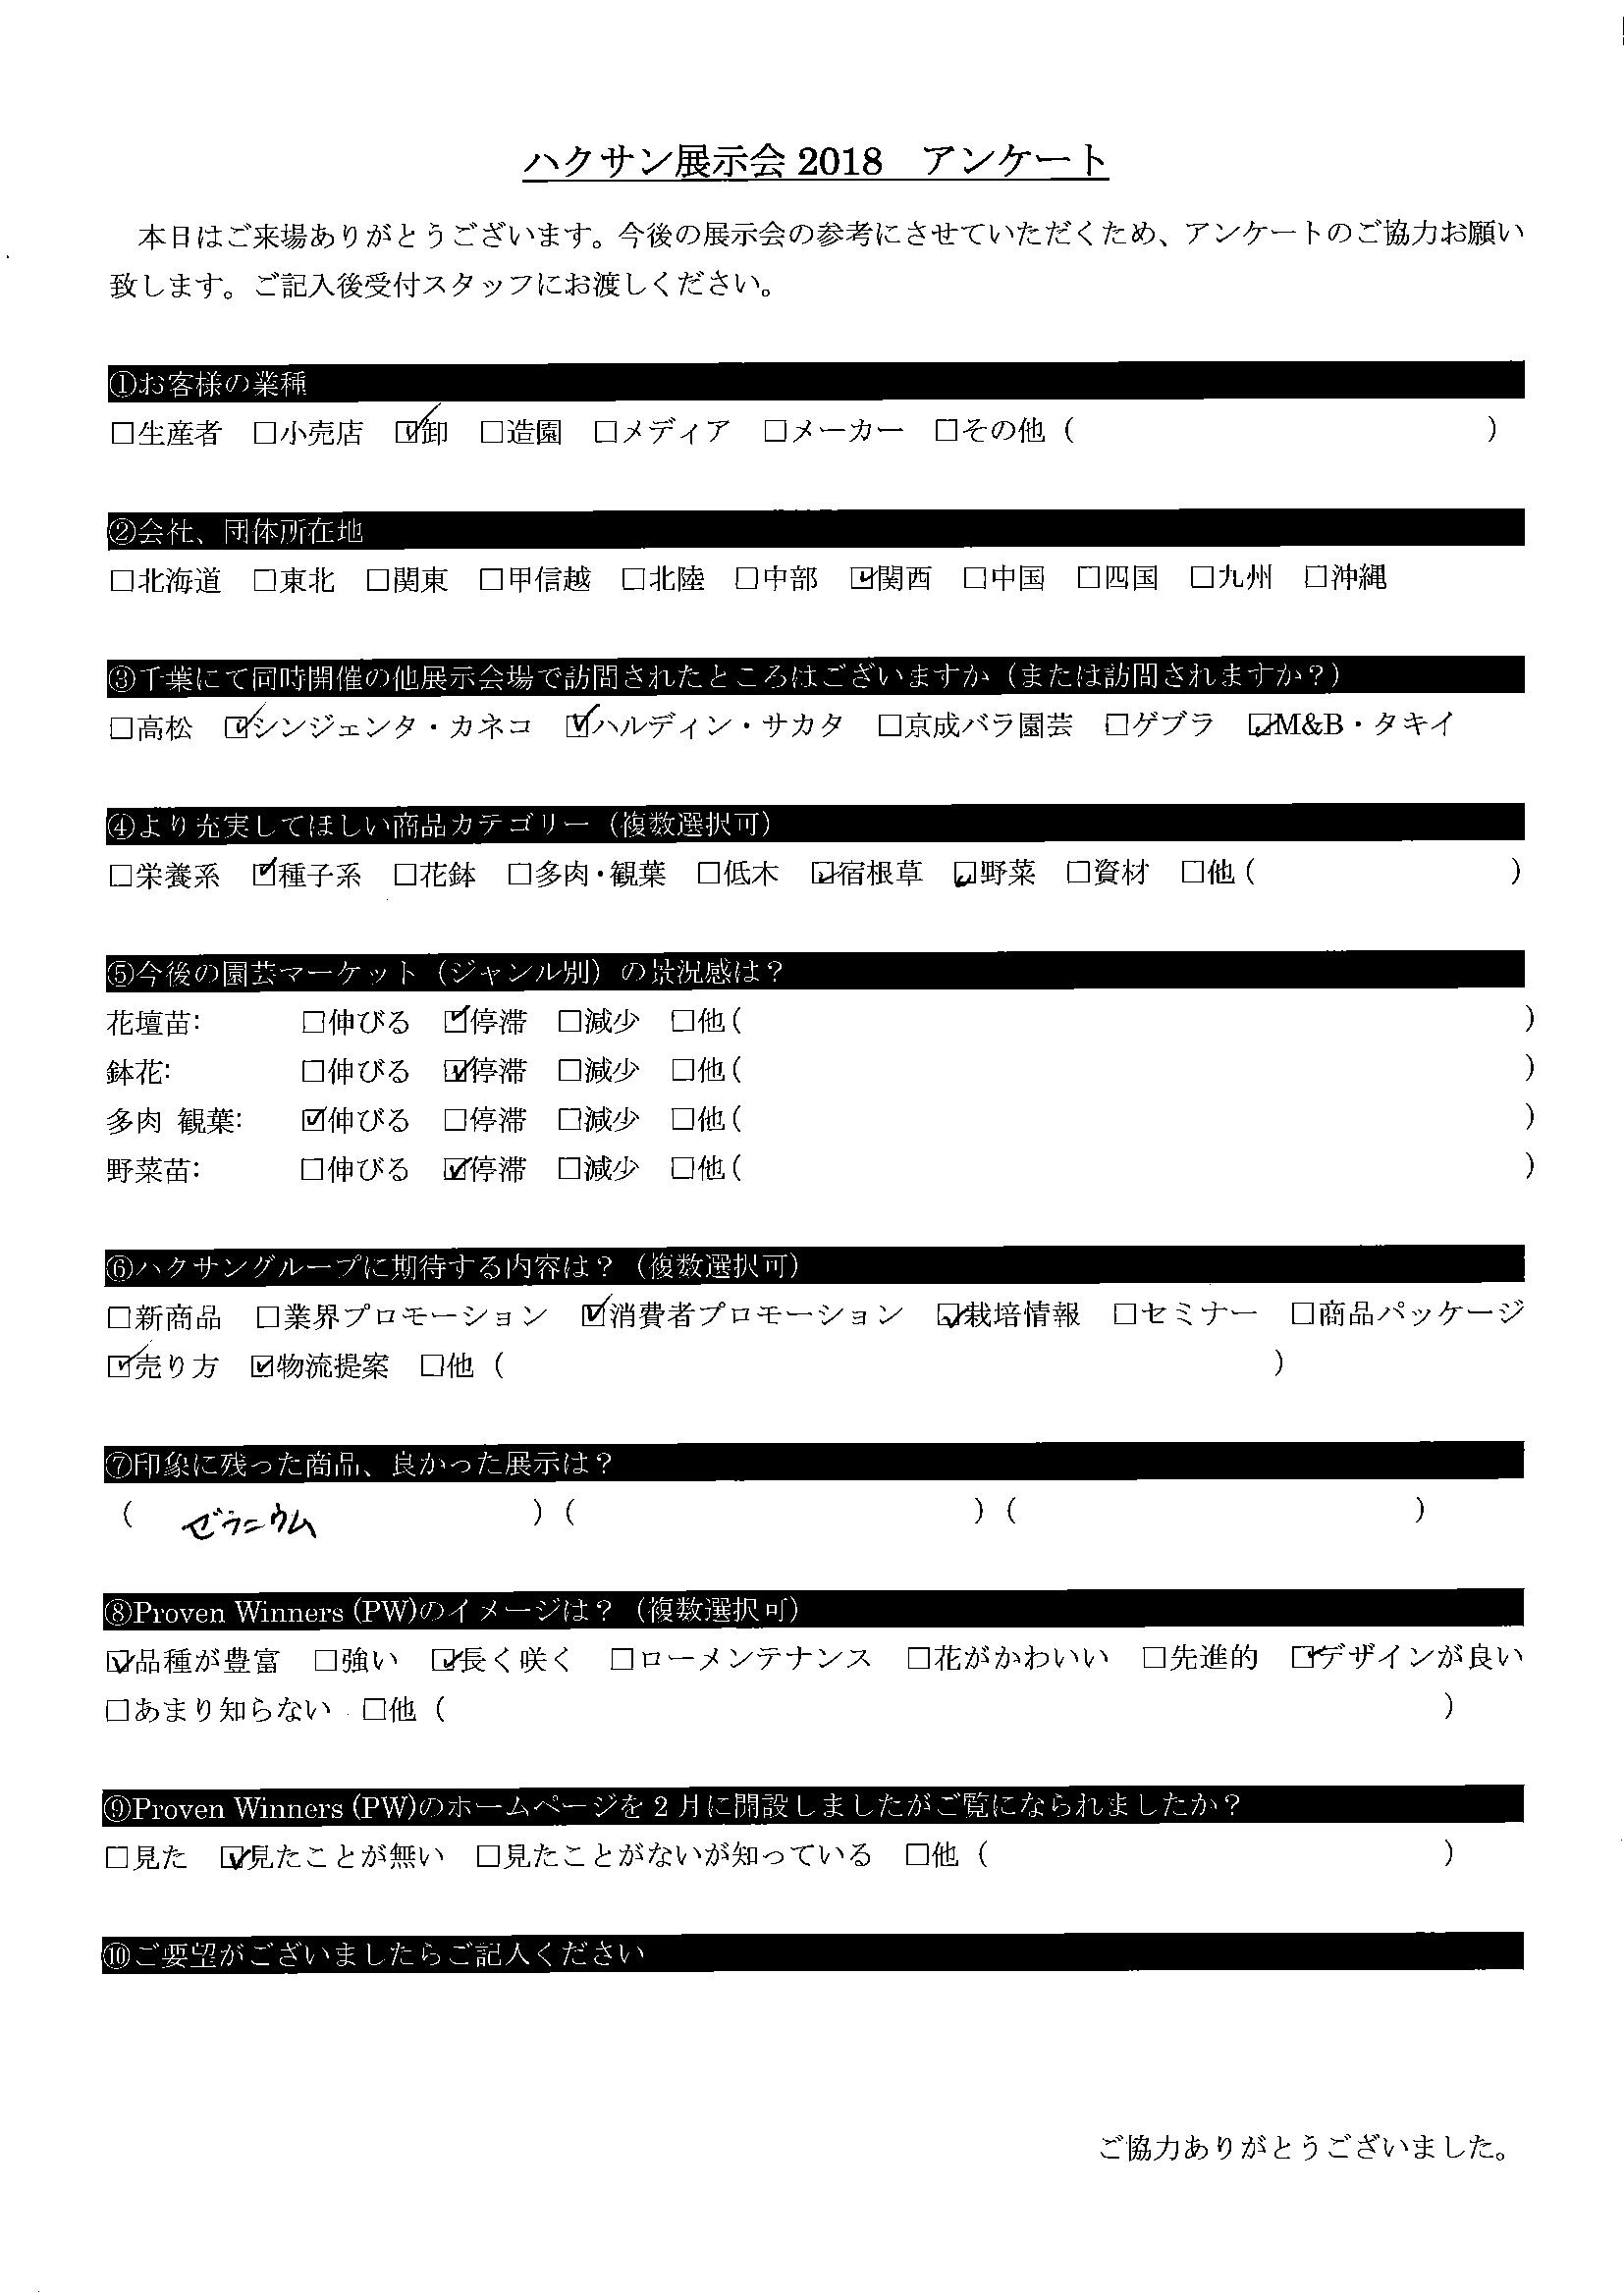 ハクサン展示会 2018　アンケート
本日はご来場ありがとうございます。今後の展示会の参考にさせていただくため、アンケートのご協力お願い
致します。ご記入後受付スタッフにお渡しください。
①お客様の業種
□生産者　□小売店　☑卸　□造園　□メディア　□メーカー　□その他（　）
②会社、団体所在地
□北海道　□東北　□関東　□甲信越　□北陸　□中部　☑関西　□中国　□四国　□九州　□沖縄
③千葉にて同時開催の他展示会場で訪問されたところはございますか（または訪問されますか？）
□高松　☑シンジェンタ・カネコ　☑ハルディン・サカタ　□京成バラ園芸　□ゲブラ　☑M&B・タキイ
④より充実してほしい商品カテゴリー（複数選択可）
□栄養系　☑種子系　□花鉢　□多肉・観葉　□低木　☑宿根草　☑野菜　□資材　□他（　）
⑤今後の園芸マーケット（ジャンル別）の景況感は？
花壇苗:　□伸びる　☑停滞　□減少　□他(　)
鉢花:　□伸びる　☑停滞　□減少　□他(　)
多肉 観葉:　☑伸びる　□停滞　□減少　□他(　)
野菜苗:　□伸びる　☑停滞　□減少　□他(　)
⑥ハクサングループに期待する内容は？（複数選択可）
□新商品　□業界プロモーション　☑消費者プロモーション　☑栽培情報　□セミナー　□商品パッケージ
☑売り方　☑物流提案　□他（　）
⑦印象に残った商品、良かった展示は？
（　ゼラニウム　）（　）（　）
⑧Proven Winners (PW)のイメージは？（複数選択可）
☑品種が豊富　□強い　☑長く咲く　□ローメンテナンス　□花がかわいい　□先進的　☑デザインが良い
□あまり知らない　□他（　）
⑨Proven Winners (PW)のホームページを 2 月に開設しましたがご覧になられましたか？
□見た　☑見たことが無い　□見たことがないが知っている　□他（　）
⑩ご要望がございましたらご記入ください
ご協力ありがとうございました。